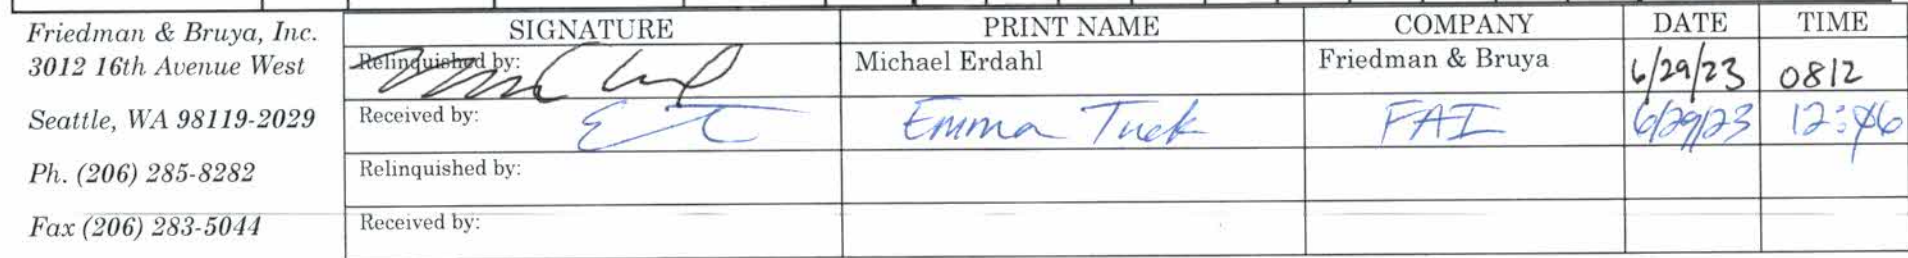 Friedman & Bruya, Inc.
3012 16th Avenue West
Seattle, WA 98119-2029
Ph. (206) 285-8282
Fax (206) 283-5044
SIGNATURE PRINT NAME COMPANY DATE TIME
Relinquished by: Michael Erdahl Friedman & Bruya 6/29/23 0812
Received by: Emma Tuck FAI 6/29/23 12:46
Relinquished by:
Received by: